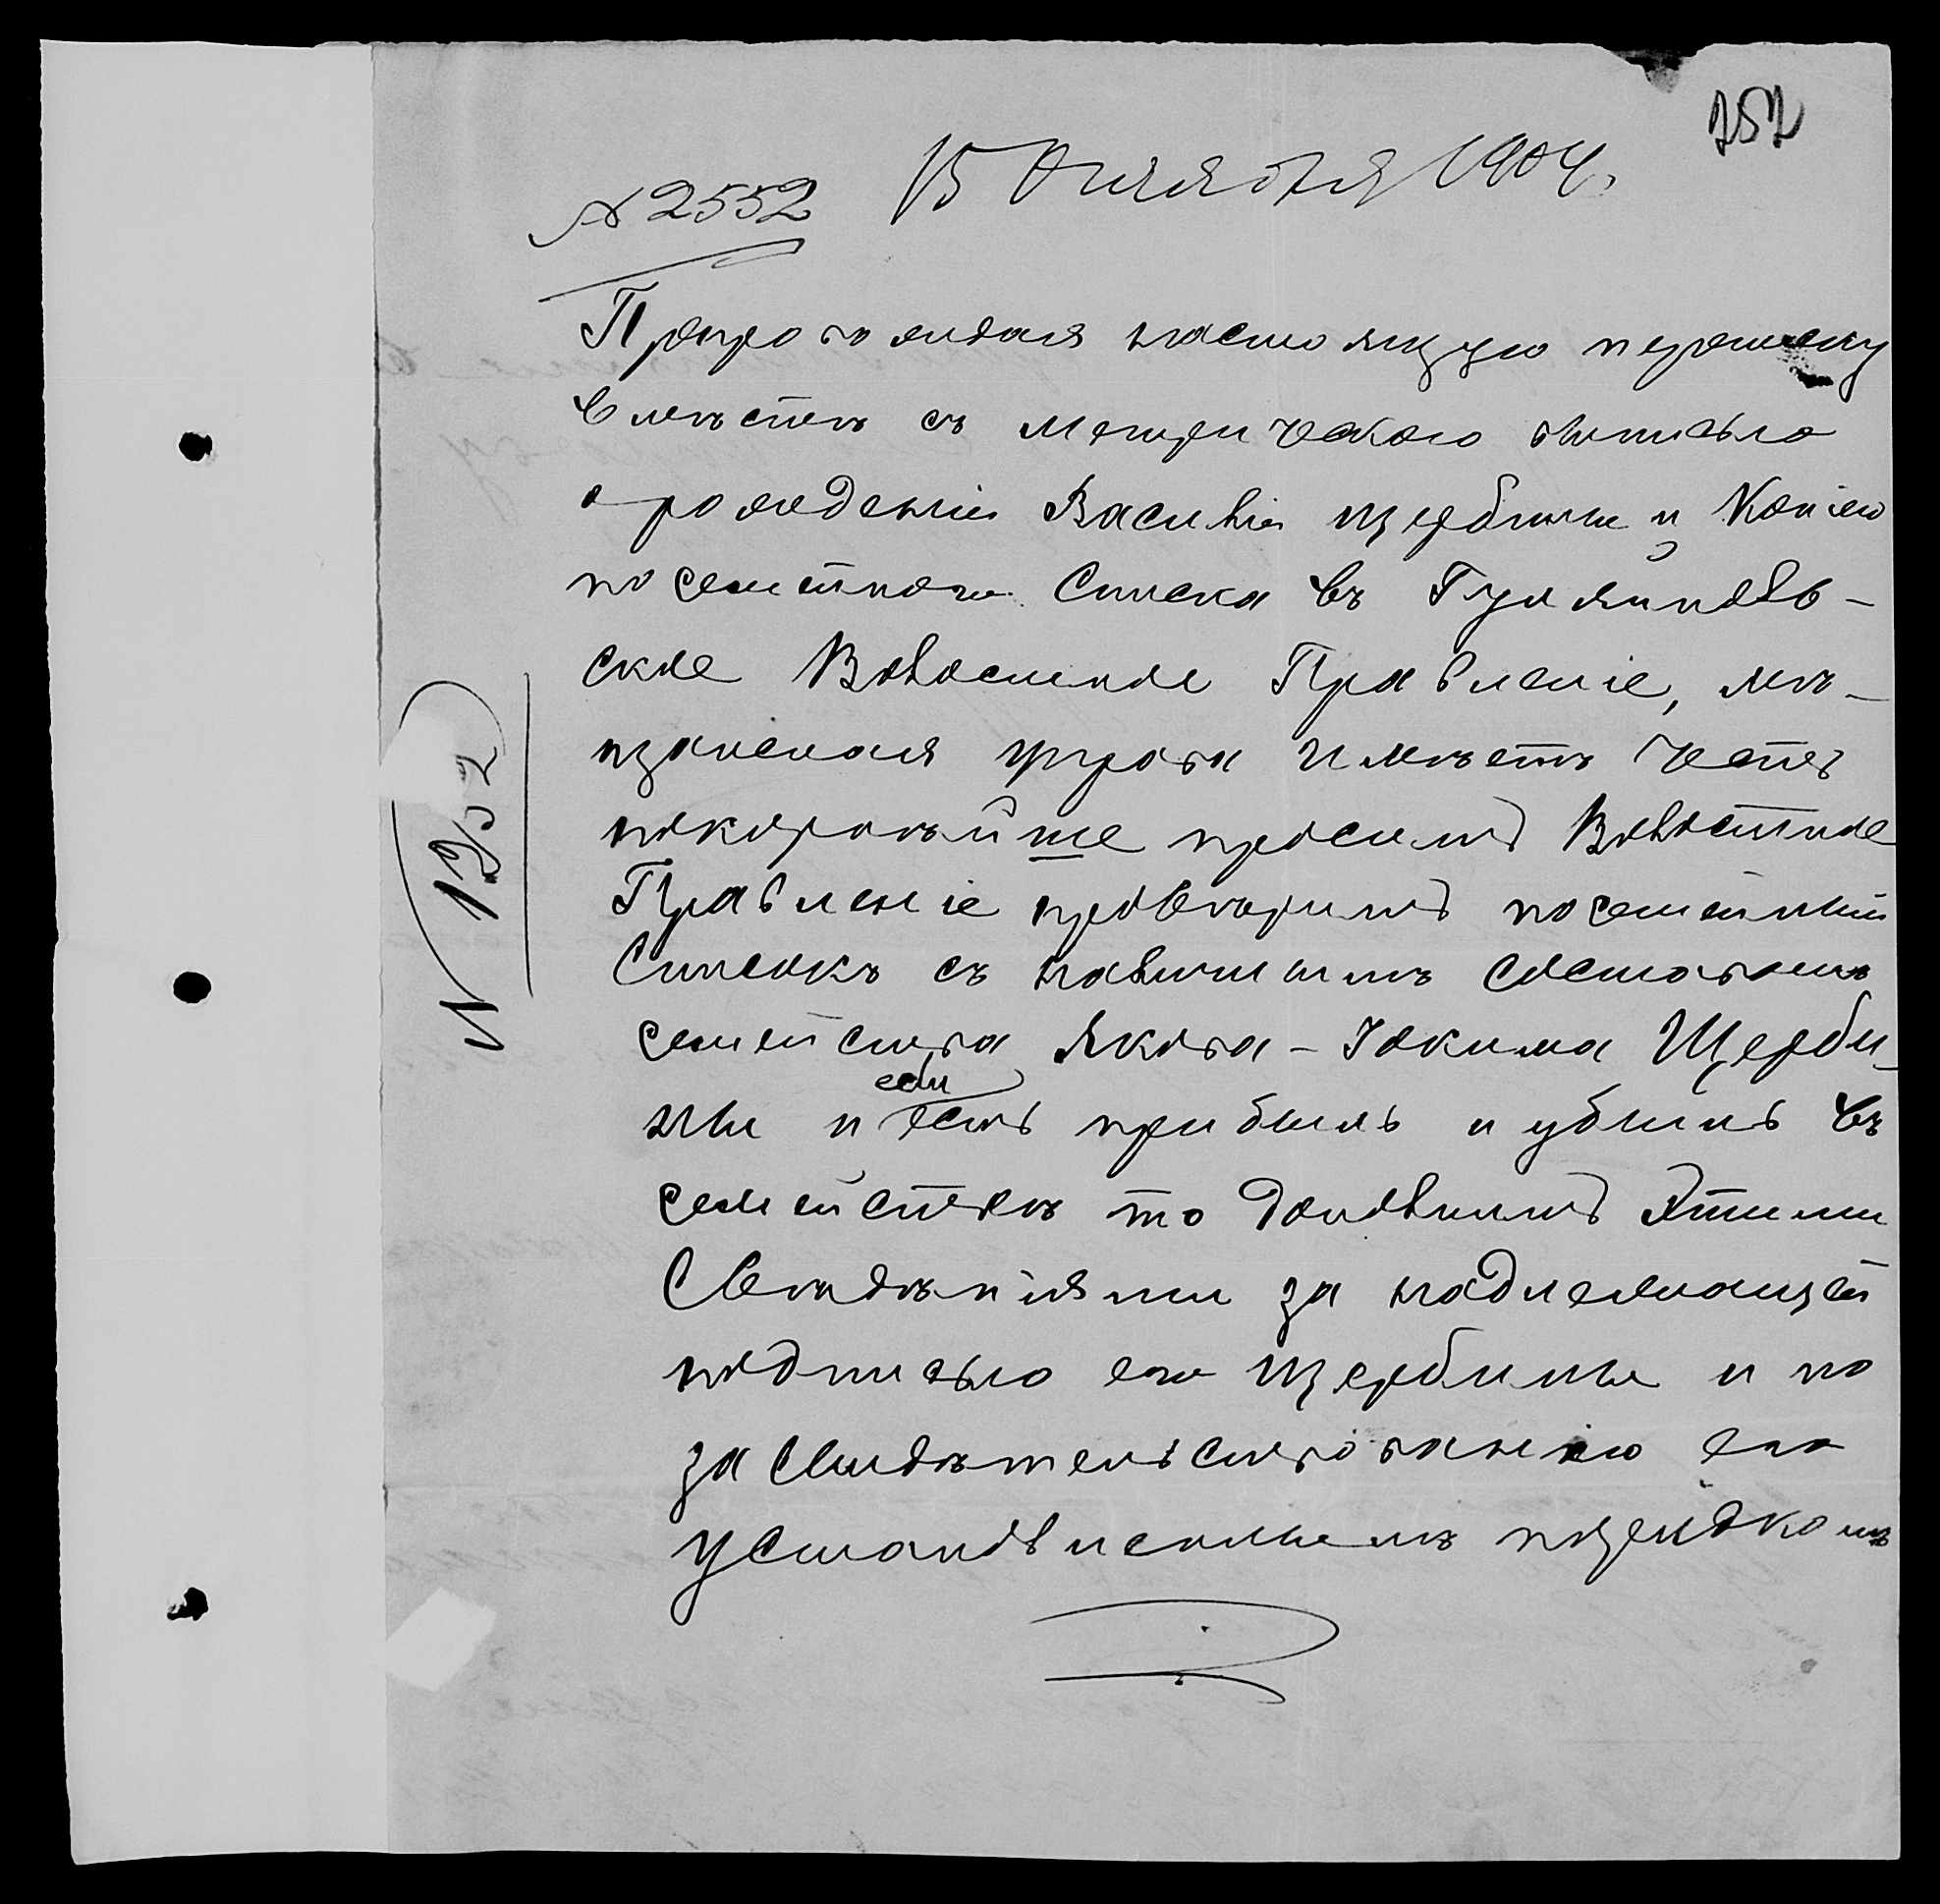 252
№ 2552 15 Октября 1904,
Препровождая настоящую переписку
вместѣ съ метрическою выписью
о рожденіи Василія Щербины и Копіею
посемейного Списка въ Гуляйпольв-
ское Волостное Правленіе, мѣ-
щанская управа имѣетъ честь
покорнѣйше просить Волостное
Правленіе провѣрить посемейный
Списокъ съ наличнымъ составомъ
семейства Якова-Іокима Щерби-
ны и если есть прибыль и убыль въ
семействѣ то дополнить этими
Свѣдѣніями за надлежащей
подписью его Щербины и по
засвидѣтельствованію его
установленнымъ порядкомъ